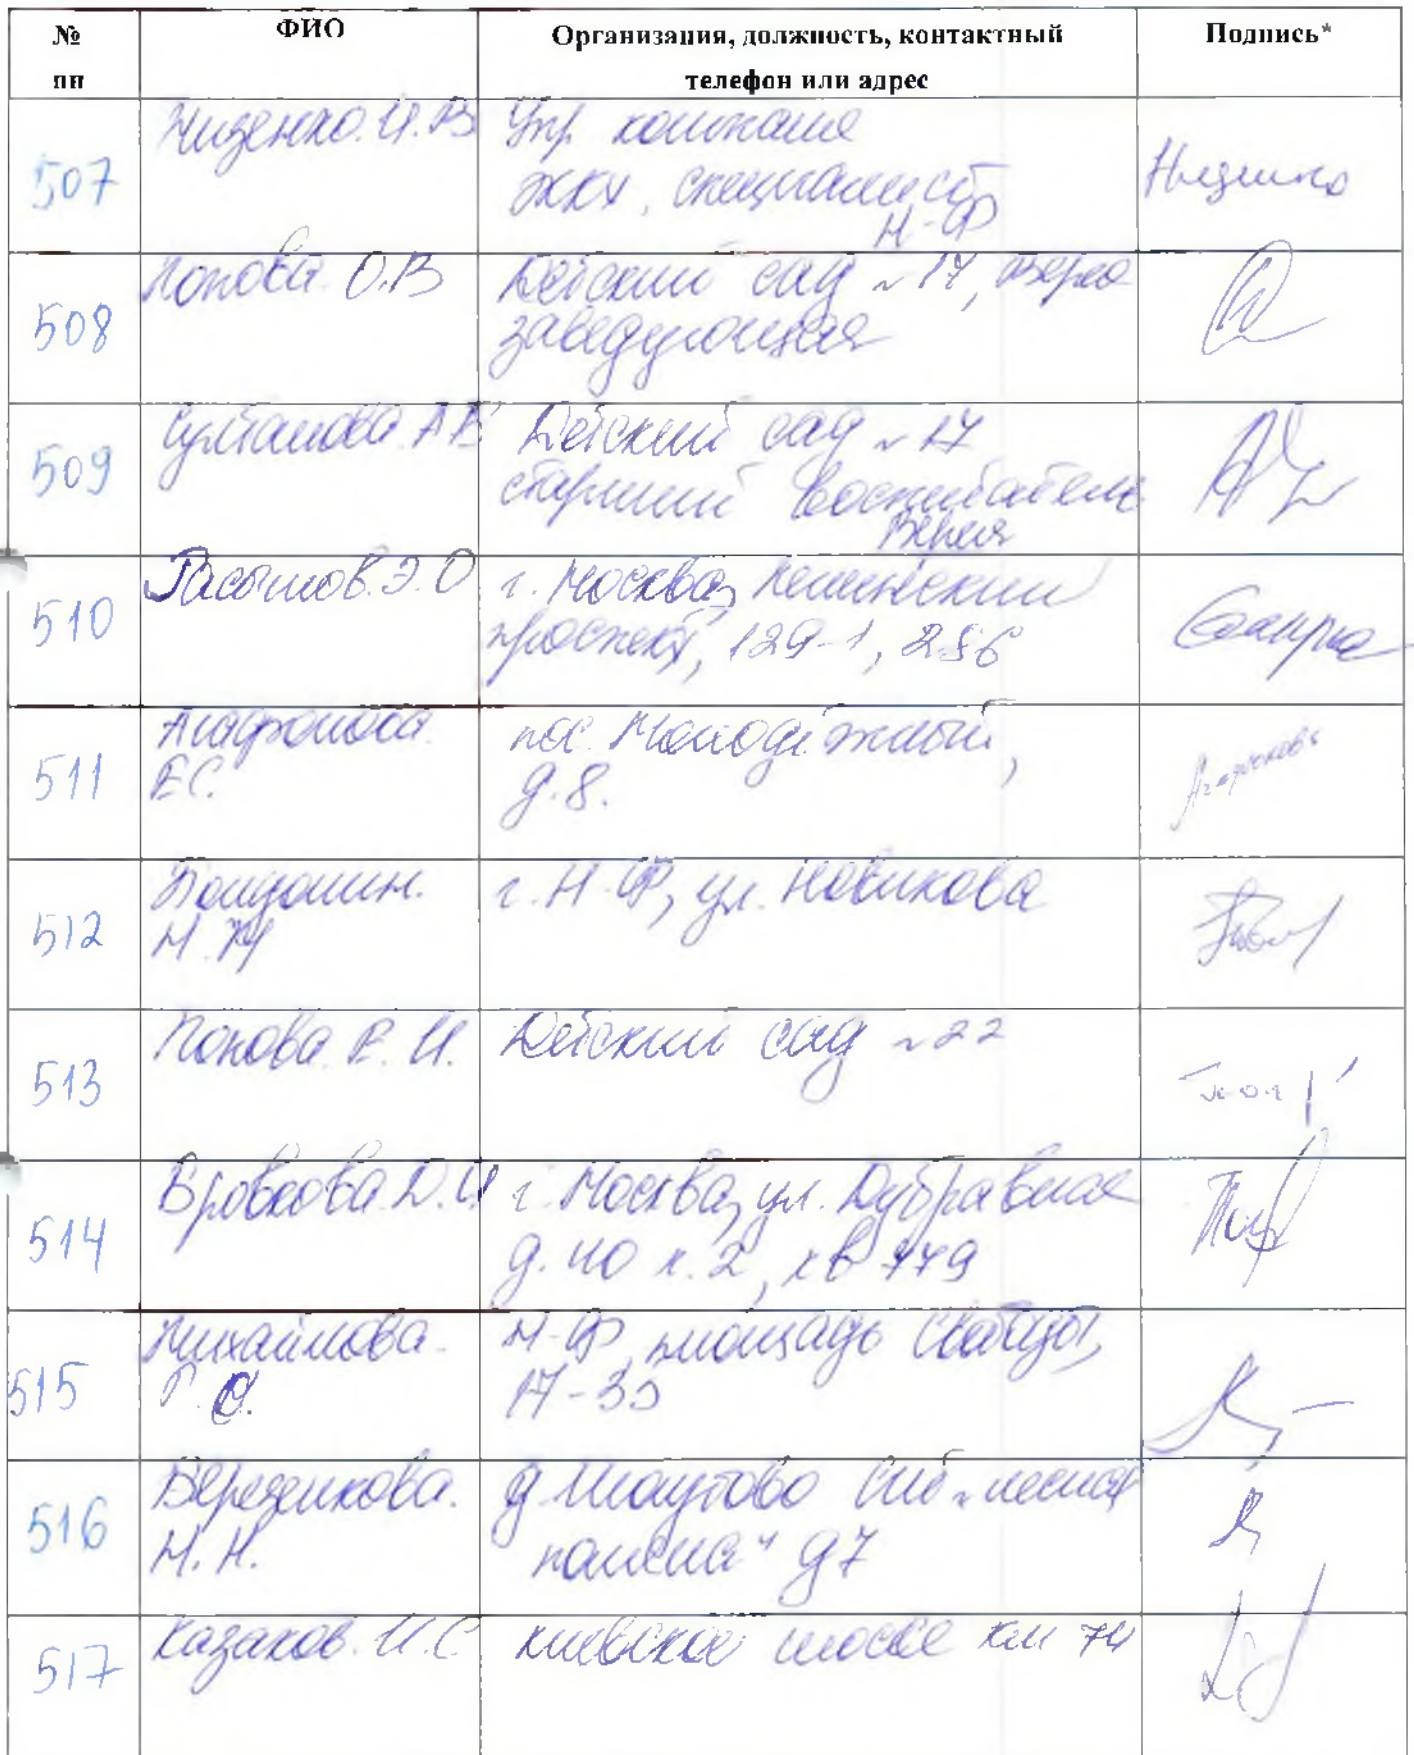 № пп
ФИО
Организация, должность, контактный
телефон или адрес
Подпись*
507
Низенко. И. В
Упр компания
ЖКХ, специалист
Н-Ф
508
Попова О.В
Детский сад №17, Верея
заведующая
509
Султанова А В
Детский сад №17
старший воспитатель
Верея
510
Расымов. Э. О
г. Москва, Ленинский
проспект, 129-1, 256
511
Агафонова
Е.С.
пос. Молодёжный,
д.8.
Агафонова
512
Н. Н
г. Н-Ф, ул. Новикова
513
Попова Е. И.
Детский сад №22
514
Бровкова Д. И
г. Москва, ул. Дубравная
д. 40 к. 2, кв 779
515
Михайлова.
Г. С.
Н-Ф, площадь Свободы,
17-35
516
Березенкова.
Н. Н.
д
лесная
поляна" д7
517
Казаков. И. С
киевское шоссе км 74